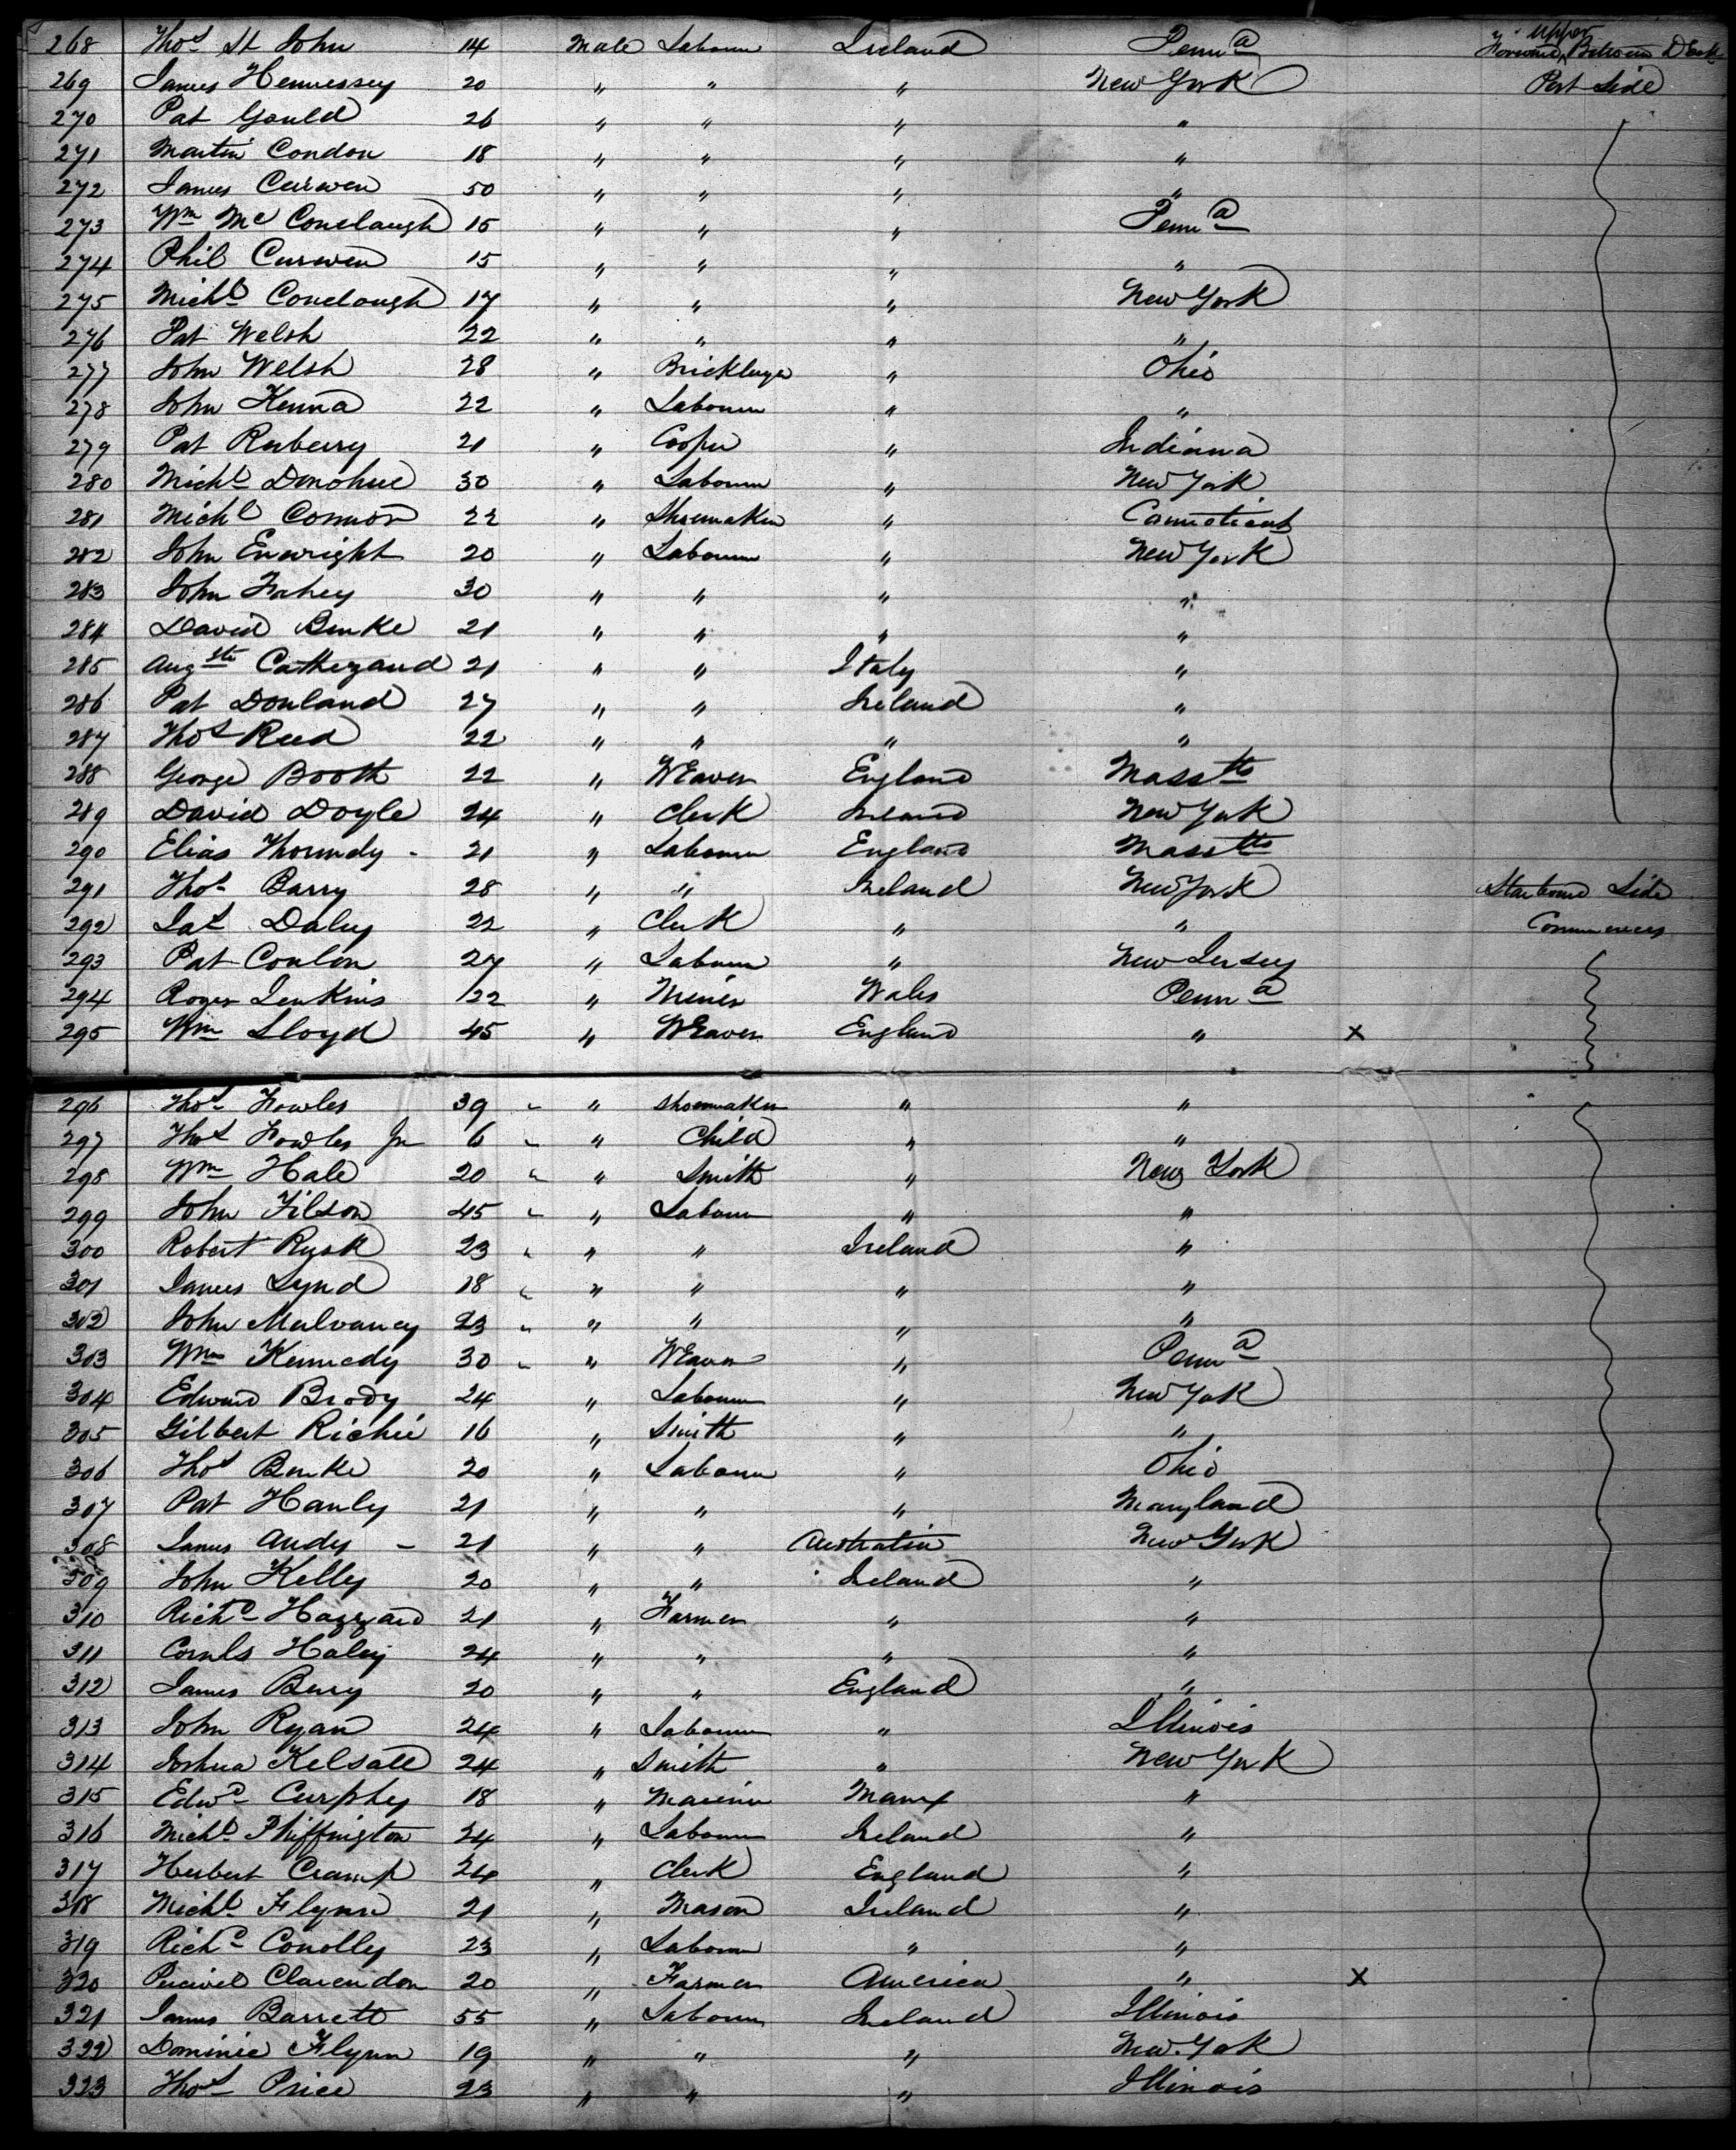 268 Thos St John 14 Male Labourer Ireland Penna Forward Upper Between Deck
269 James Hennessey 20 " " " New York Port Side
270 Pat Gould 26 " " " "
271 Martin Condon 18 " " " "
272 James Curwen 50 " " " "
273 Wm Mc Conclaugh 15 " " " Penna
274 Phil Curwen 15 " " " "
275 Michl Conclough 17 " " " New York
276 Pat Welsh 22 " " " "
277 John Welsh 28 " Bricklayer " Ohio
278 John Kenna 22 " Labourer " "
279 Pat Ruberry 21 " Cooper " Indiana
280 Michl Donohue 30 " Labourer " New York
281 Michl Connor 22 " Shoemaker " Connecticut
282 John Enwright 20 " Labourer " New York
283 John Fahey 30 " " " "
284 David Burke 21 " " " "
285 Augste Cathezand 21 " " Italy "
286 Pat Donland 27 " " Ireland "
287 Thos Reed 22 " " " "
288 George Booth 22 " Weaver England Masstts
289 David Doyle 24 " Clerk Ireland New York
290 Elias Thormdy - 21 " Labourer England Masstts
291 Thos Barry 28 " " Ireland New York Starboard Side
292 Jas Daley 22 " Clerk " " Commences
293 Pat Conlon 27 " Labourer " New Jersey
294 Roger Jenkins 22 " Miner Wales Penna
295 Wm Lloyd 45 " Weaver England " x
296 Thos Fowles 39 " Shoemaker " "
297 Thos Fowles Jr 6 " Child " "
298 Wm Hale 20 " Smith " New York
299 John Filson 45 " Labourer " "
300 Robert Rusk 23 " " Ireland "
301 James Lynd 18 " " " "
302 John Mulvaney 23 " " " "
303 Wm Kennedy 30 " Weaver " Penna
304 Edward Brody 24 " Labourer " New York
305 Gilbert Richie 16 " Smith " "
306 Thos Burke 20 " Labourer " Ohio
307 Pat Hanly 21 " " " Maryland
308 James Andy - 21 " " Australia New York
309 John Kelly 20 " " Ireland "
310 Richd Hazzard 21 " Farmer " "
311 Cornls Haley 24 " " " "
312 James Berry 20 " " England "
313 John Ryan 24 " Labourer " Illinois
314 Joshua Kelsall 24 " Smith " New York
315 Edwd Curphey 18 " Mariner Manx "
316 Michl Skiffington 24 " Labourer Ireland "
317 Herbert Cramp 24 " Clerk England "
318 Michl Flynn 21 " Mason Ireland "
319 Richd Conolly 23 " Labourer " "
320 Percivel Clarendon 20 " Farmer America " x
321 James Barrett 55 " Labourer Ireland Illinois
322 Dominic Flynn 19 " " " New York
323 Thos Price 23 " " " Illinois